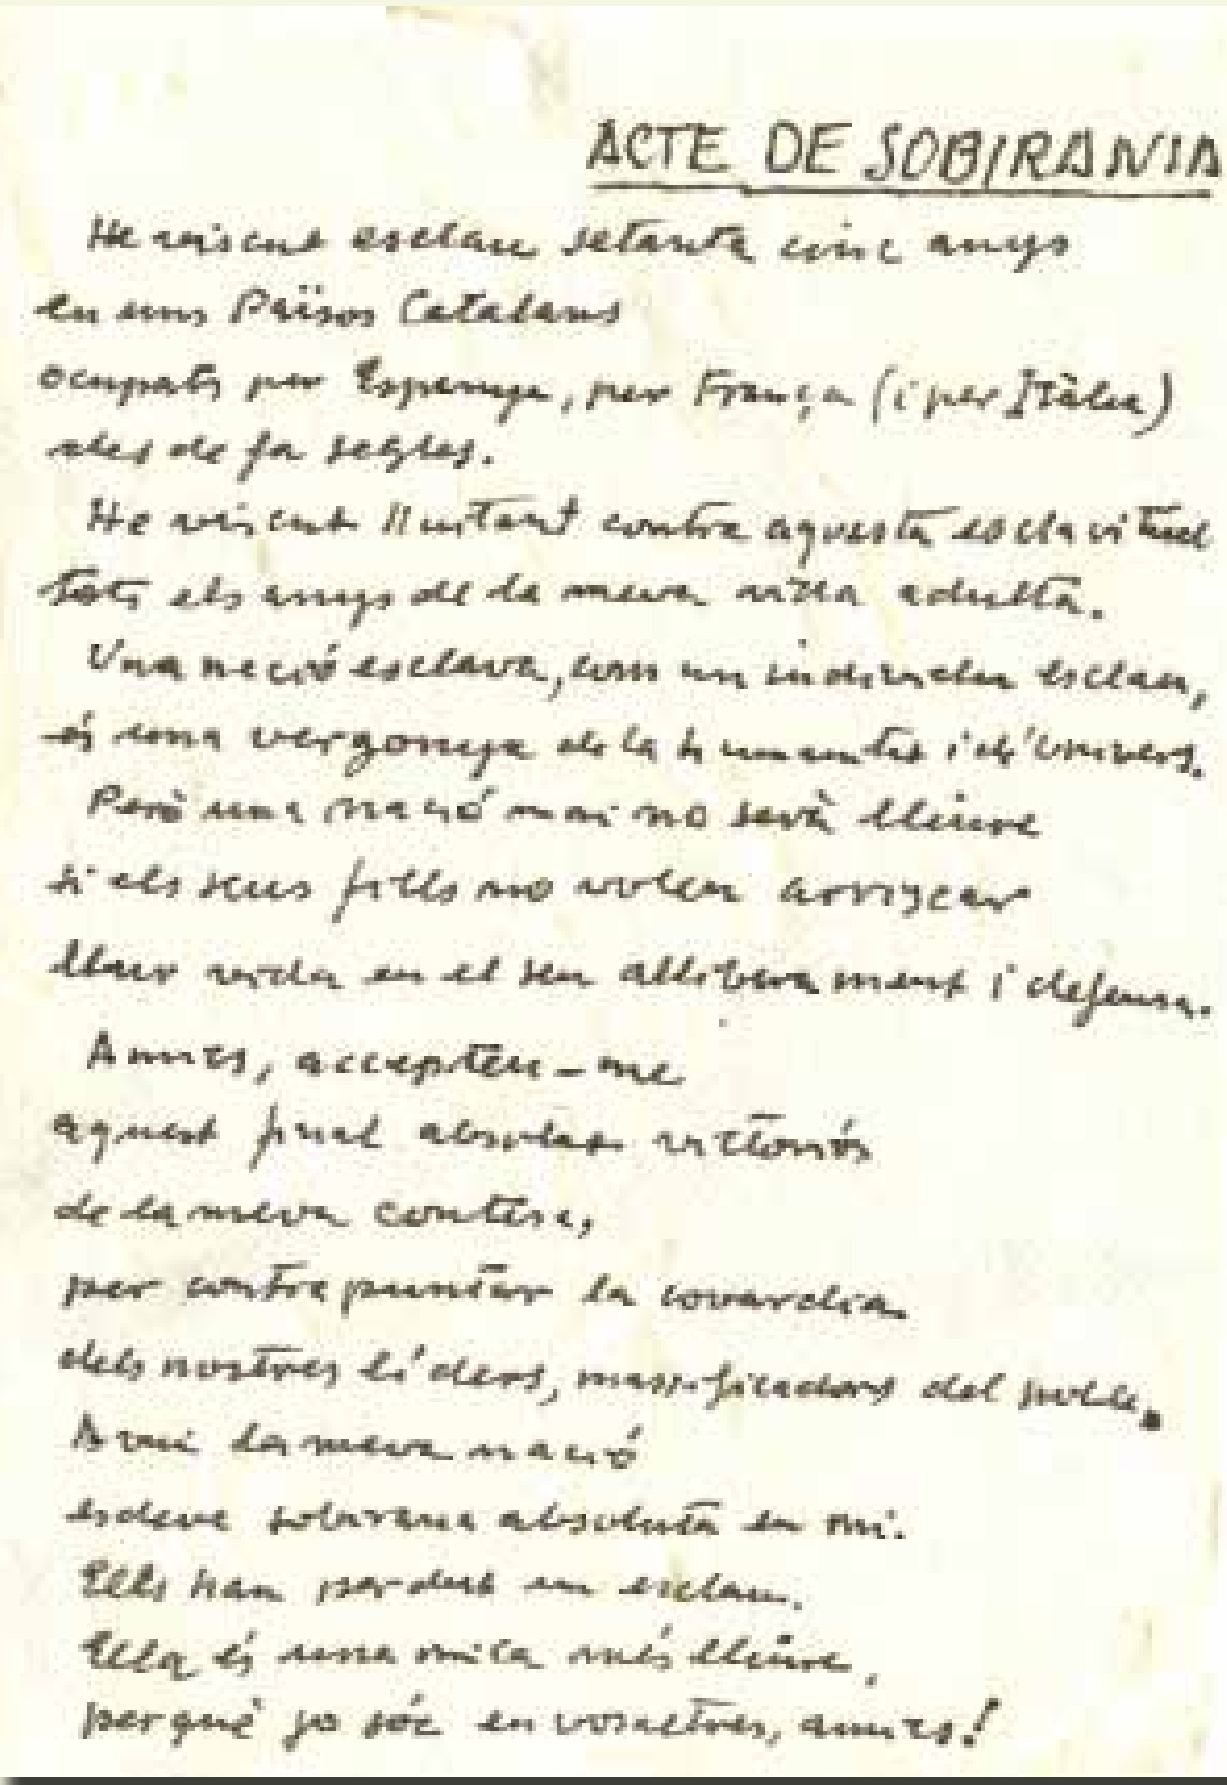 ACTE DE SOBIRANIA
He viscut esclau setanta cinc anys
en uns Països Catalans
ocupats per Espanya, per França (i per Itàlia)
des de fa segles.
He viscut lluitant contra aquesta esclavitud
tots els anys de la meva vida adulta.
Una nació esclava, com un individu esclau,
és una vergonya de la humanitat i de l'Univers.
Però una nació mai no serà lliure
si els seus fills no volen arriscar
llur vida en el seu alliberament i defensa.
Amics, accepteu-me
aquest final absolut victoriós
de la meva contesa,
per contrapuntar la covardia
dels nostres líders, massificadors del poble.
Avui la meva nació
esdevé sobirana absoluta en mi.
Ells han perdut un esclau.
Ella és una mica més lliure,
perquè jo sóc en vosaltres, amics!